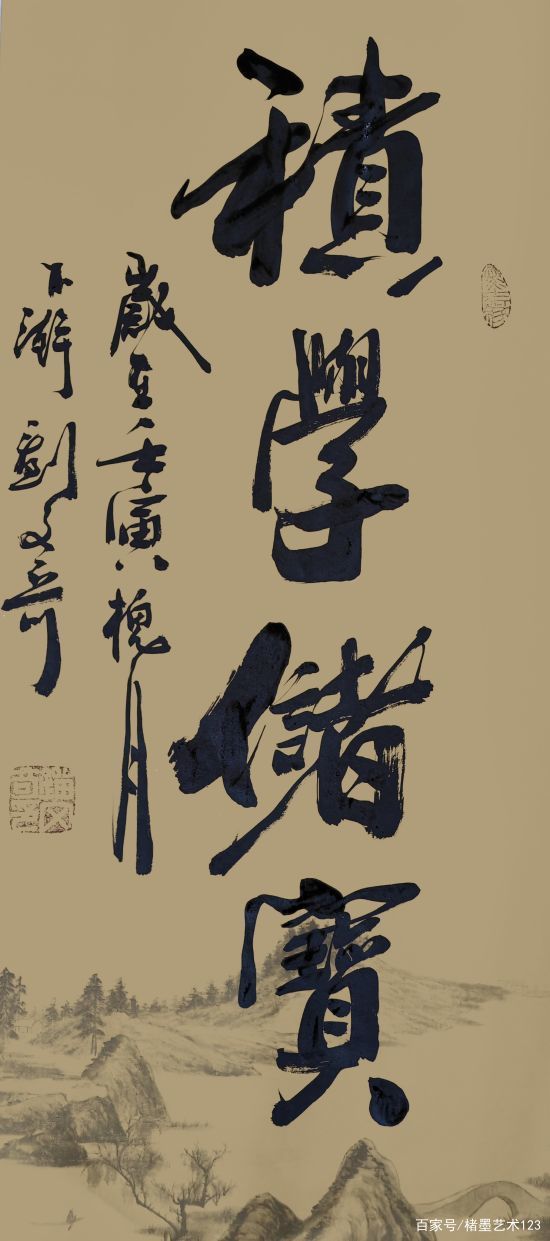 積學儲寶
歲在壬寅槐月
劉文奇
百家号/楮墨艺术123